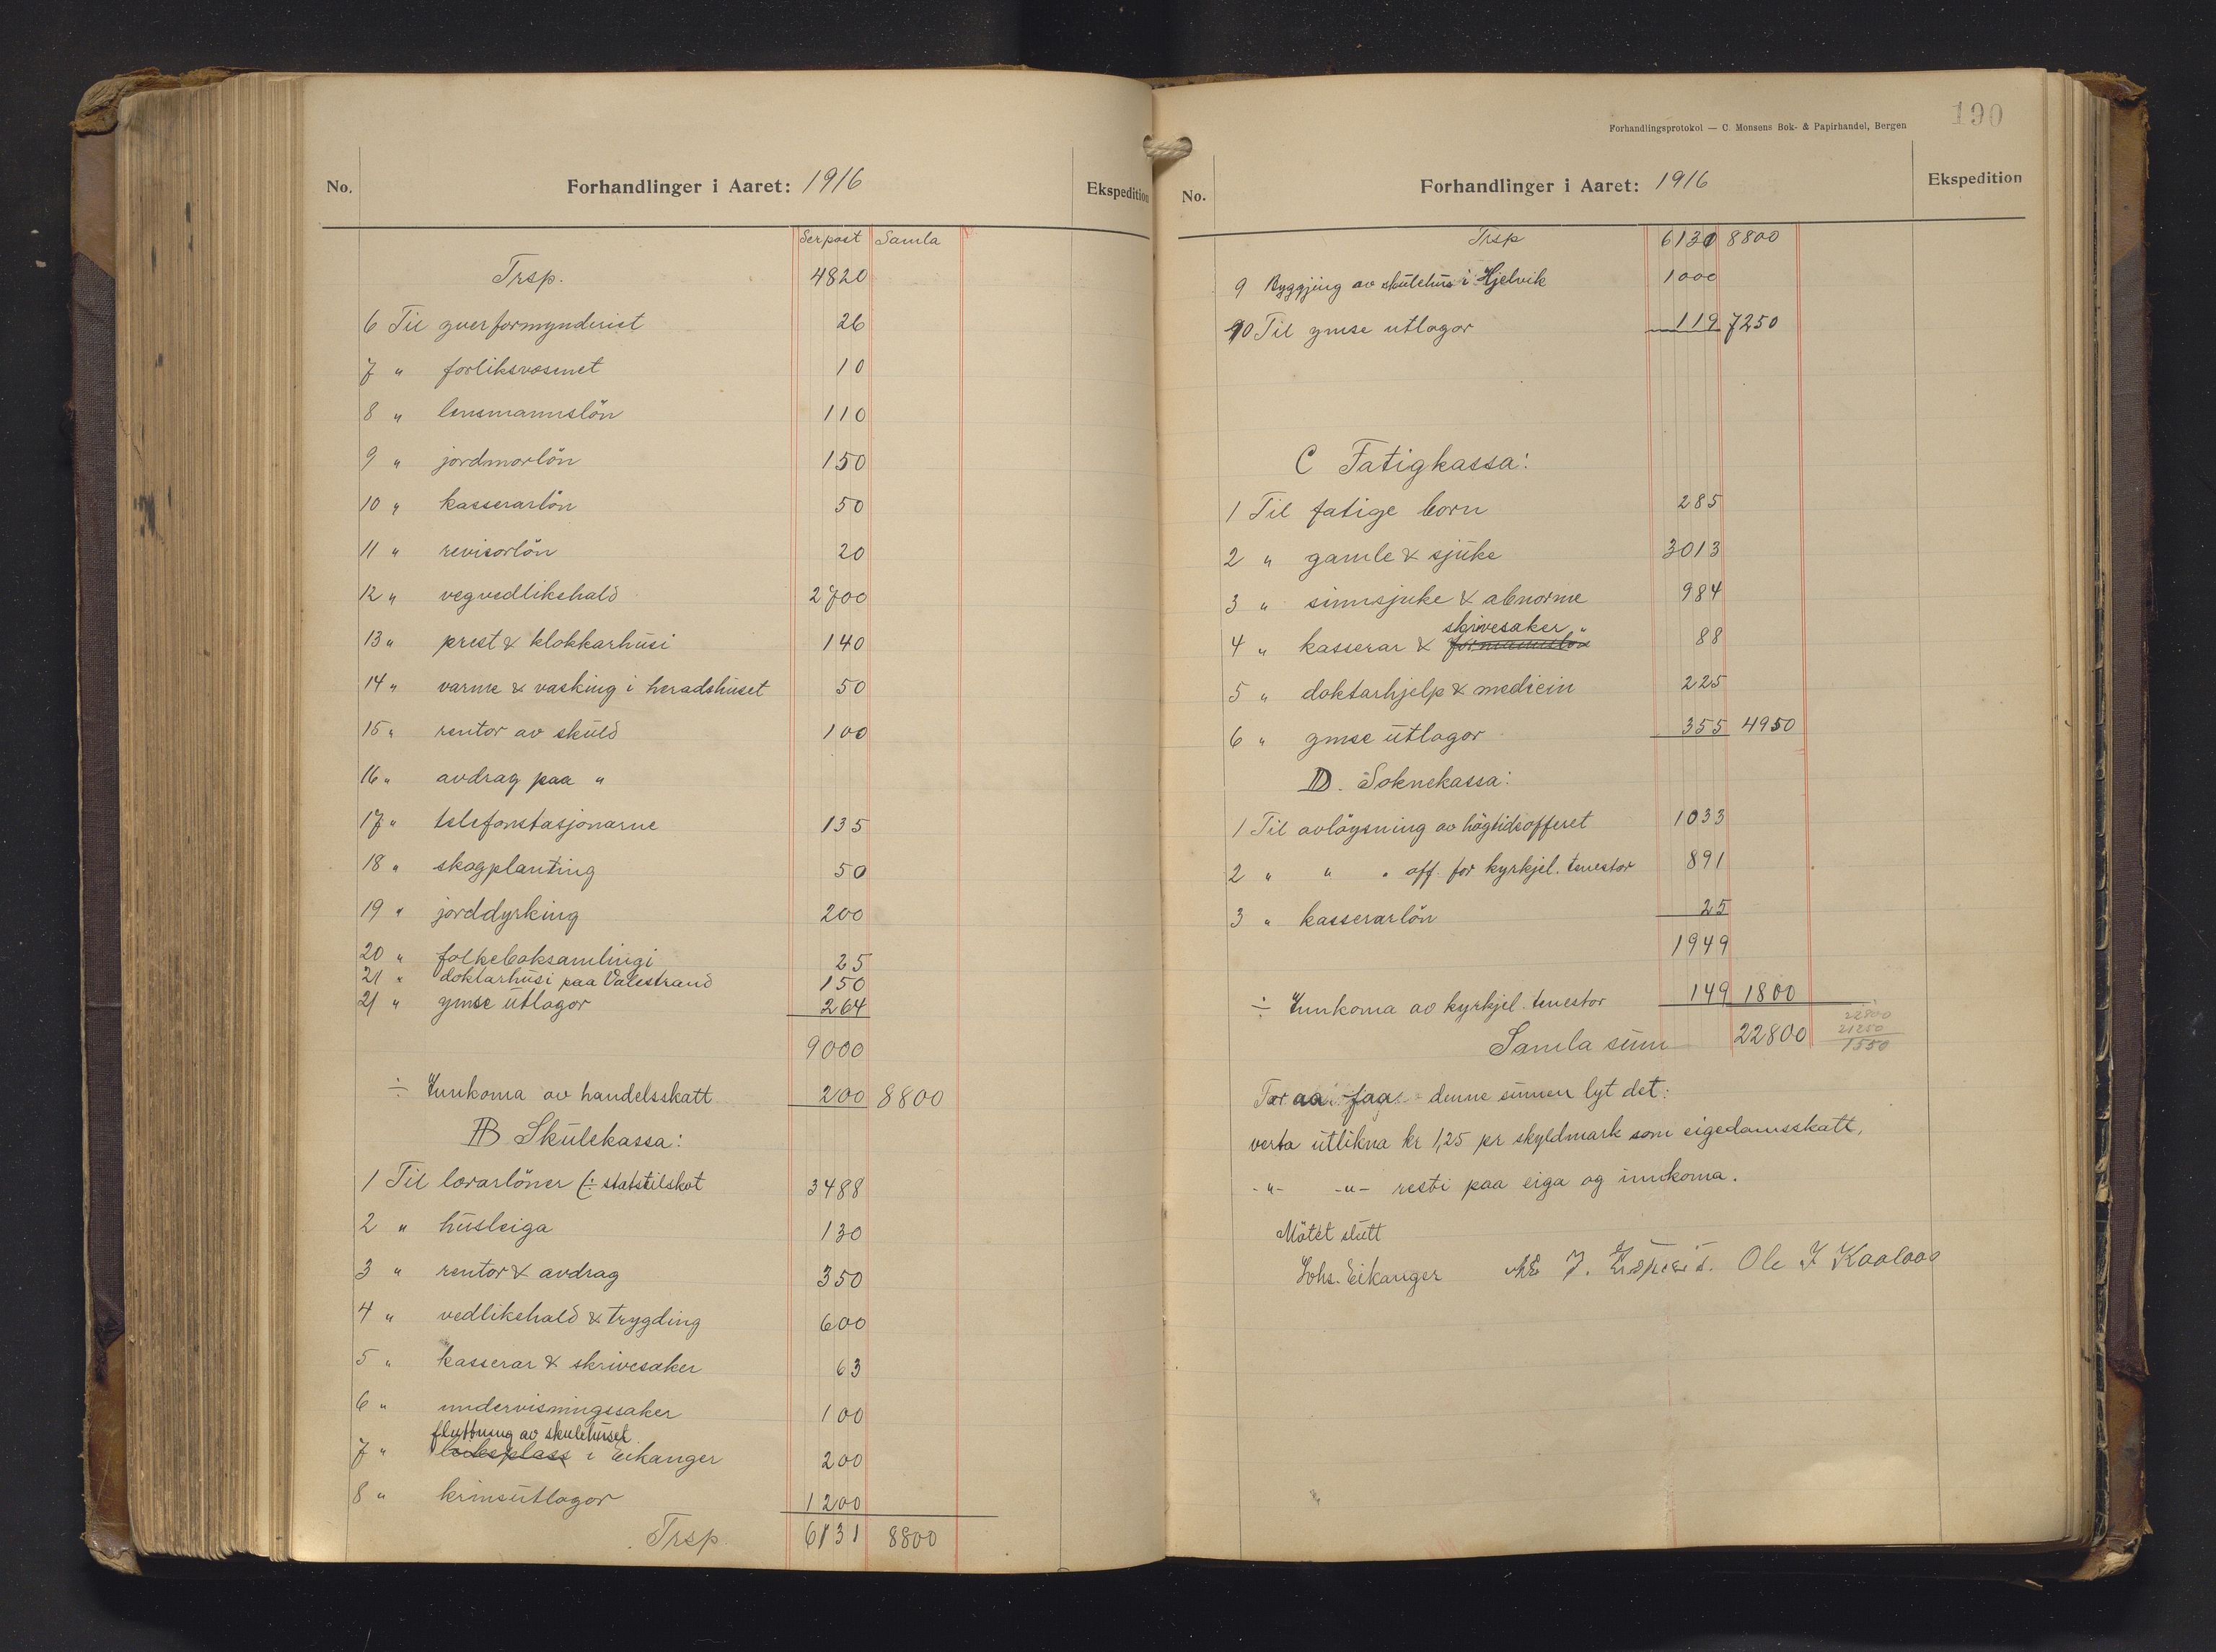 No. Forhandlinger i Aaret: 1916 Ekspedition
Serpost Samla
Trsp. 4820
6 Til yverformynderiet 26
7 " forliksvæsenet 10
8 " lensmannslön 110
9 " jordmorlön 150
10 " kasserarlön 50
11 " revisorlön 20
12 " vegvedlikehald 2700
13 " prest & klokkarhusi 140
14 " varme & vasking i heradshuset 50
15 " rentor av skuld 100
16 " avdrag paa "
17 " telefonstasjonarne 135
18 " skogplanting 50
19 " jorddyrking 200
20 " folkeboksamlingi 25
21 " doktarhusi paa Valestrand 150
21 " ymse utlogor 264
9000
÷ Innkoma av handelsskatt 200 8800
B Skulekassa:
1 Til lærarlöner (÷ statstilskot 3488
2 " husleiga 130
3 " rentor & avdrag 350
4 " vedlikehald & trygding 600
5 " kasserar & skrivesaker 63
6 " undervisningssaker 100
flutning av skulehuset
7 " i Eikanger 200
8 " krinsutlogor 1200
Trsp 6131 8800
Forhandlingsprotokol — C. Monsens Bok- & Papirhandel, Bergen
190
No. Forhandlinger i Aaret: 1916 Ekspedition
Trsp 6131 8800
9 Byggjing av skulehus i Hjelvik 1000
10 Til ymse utlogor 119 7250
C Fatigkassa:
1 Til fatige born 285
2 " gamle & sjuke 3013
3 " sinnsjuke & abnorme 984
skrivesaker "
4 " kasserar & formannslön 88
5 " doktarhjelp & medicin 225
6 " ymse utlogor 355 4950
D. Soknekassa:
1 Til avlöysning av högtidsofferet 1033
2 " " " off. for kyrkjel. tenestor 891
3 " kasserarlön 25
1949
÷ Innkoma av kyrkjel. tenestor 149 1800
Samla sum 22800
22800
21250
1550
For aa faa denne summen lyt det:
verta utlikna kr 1,25 pr skyldmark som eigedomsskatt,
-"- -"- resti paa eiga og innkoma.
Mötet slutt
Johs. Eikanger J. Ole J Kaalaas